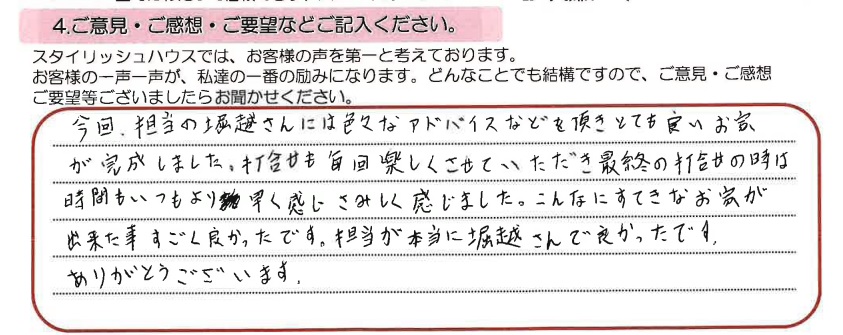 4.ご意見・ご感想・ご要望などご記入ください。
スタイリッシュハウスでは、お客様の声を第一と考えております。
お客様の一声一声が、私達の一番の励みになります。どんなことでも結構ですので、ご意見・ご感想
ご要望等ございましたらお聞かせください。
今回、担当の堀越さんには色々なアドバイスなどを頂きとても良いお家
が完成しました。打合せも毎回楽しくさせていただき最終の打合せの時は
時間もいつもより早く感じさみしく感じました。こんなにすてきなお家が
出来た事すごく良かったです。担当が本当に堀越さんで良かったです。
ありがとうございます。